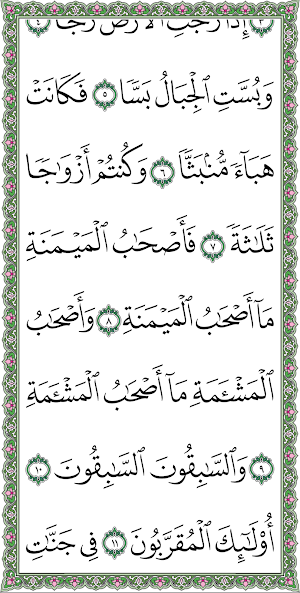 ٣ إِذَا رُجَّتِ ٱلْأَرْضُ رَجًّا ٤
وَبُسَّتِ ٱلْجِبَالُ بَسًّا ٥ فَكَانَتْ
هَبَآءً مُّنۢبَثًّا ٦ وَكُنتُمْ أَزْوَٰجًا
ثَلَٰثَةً ٧ فَأَصْحَٰبُ ٱلْمَيْمَنَةِ
مَآ أَصْحَٰبُ ٱلْمَيْمَنَةِ ٨ وَأَصْحَٰبُ
ٱلْمَشْـَٔمَةِ مَآ أَصْحَٰبُ ٱلْمَشْـَٔمَةِ
٩ وَٱلسَّٰبِقُونَ ٱلسَّٰبِقُونَ ١٠
أُو۟لَٰٓئِكَ ٱلْمُقَرَّبُونَ ١١ فِى جَنَّٰتِ